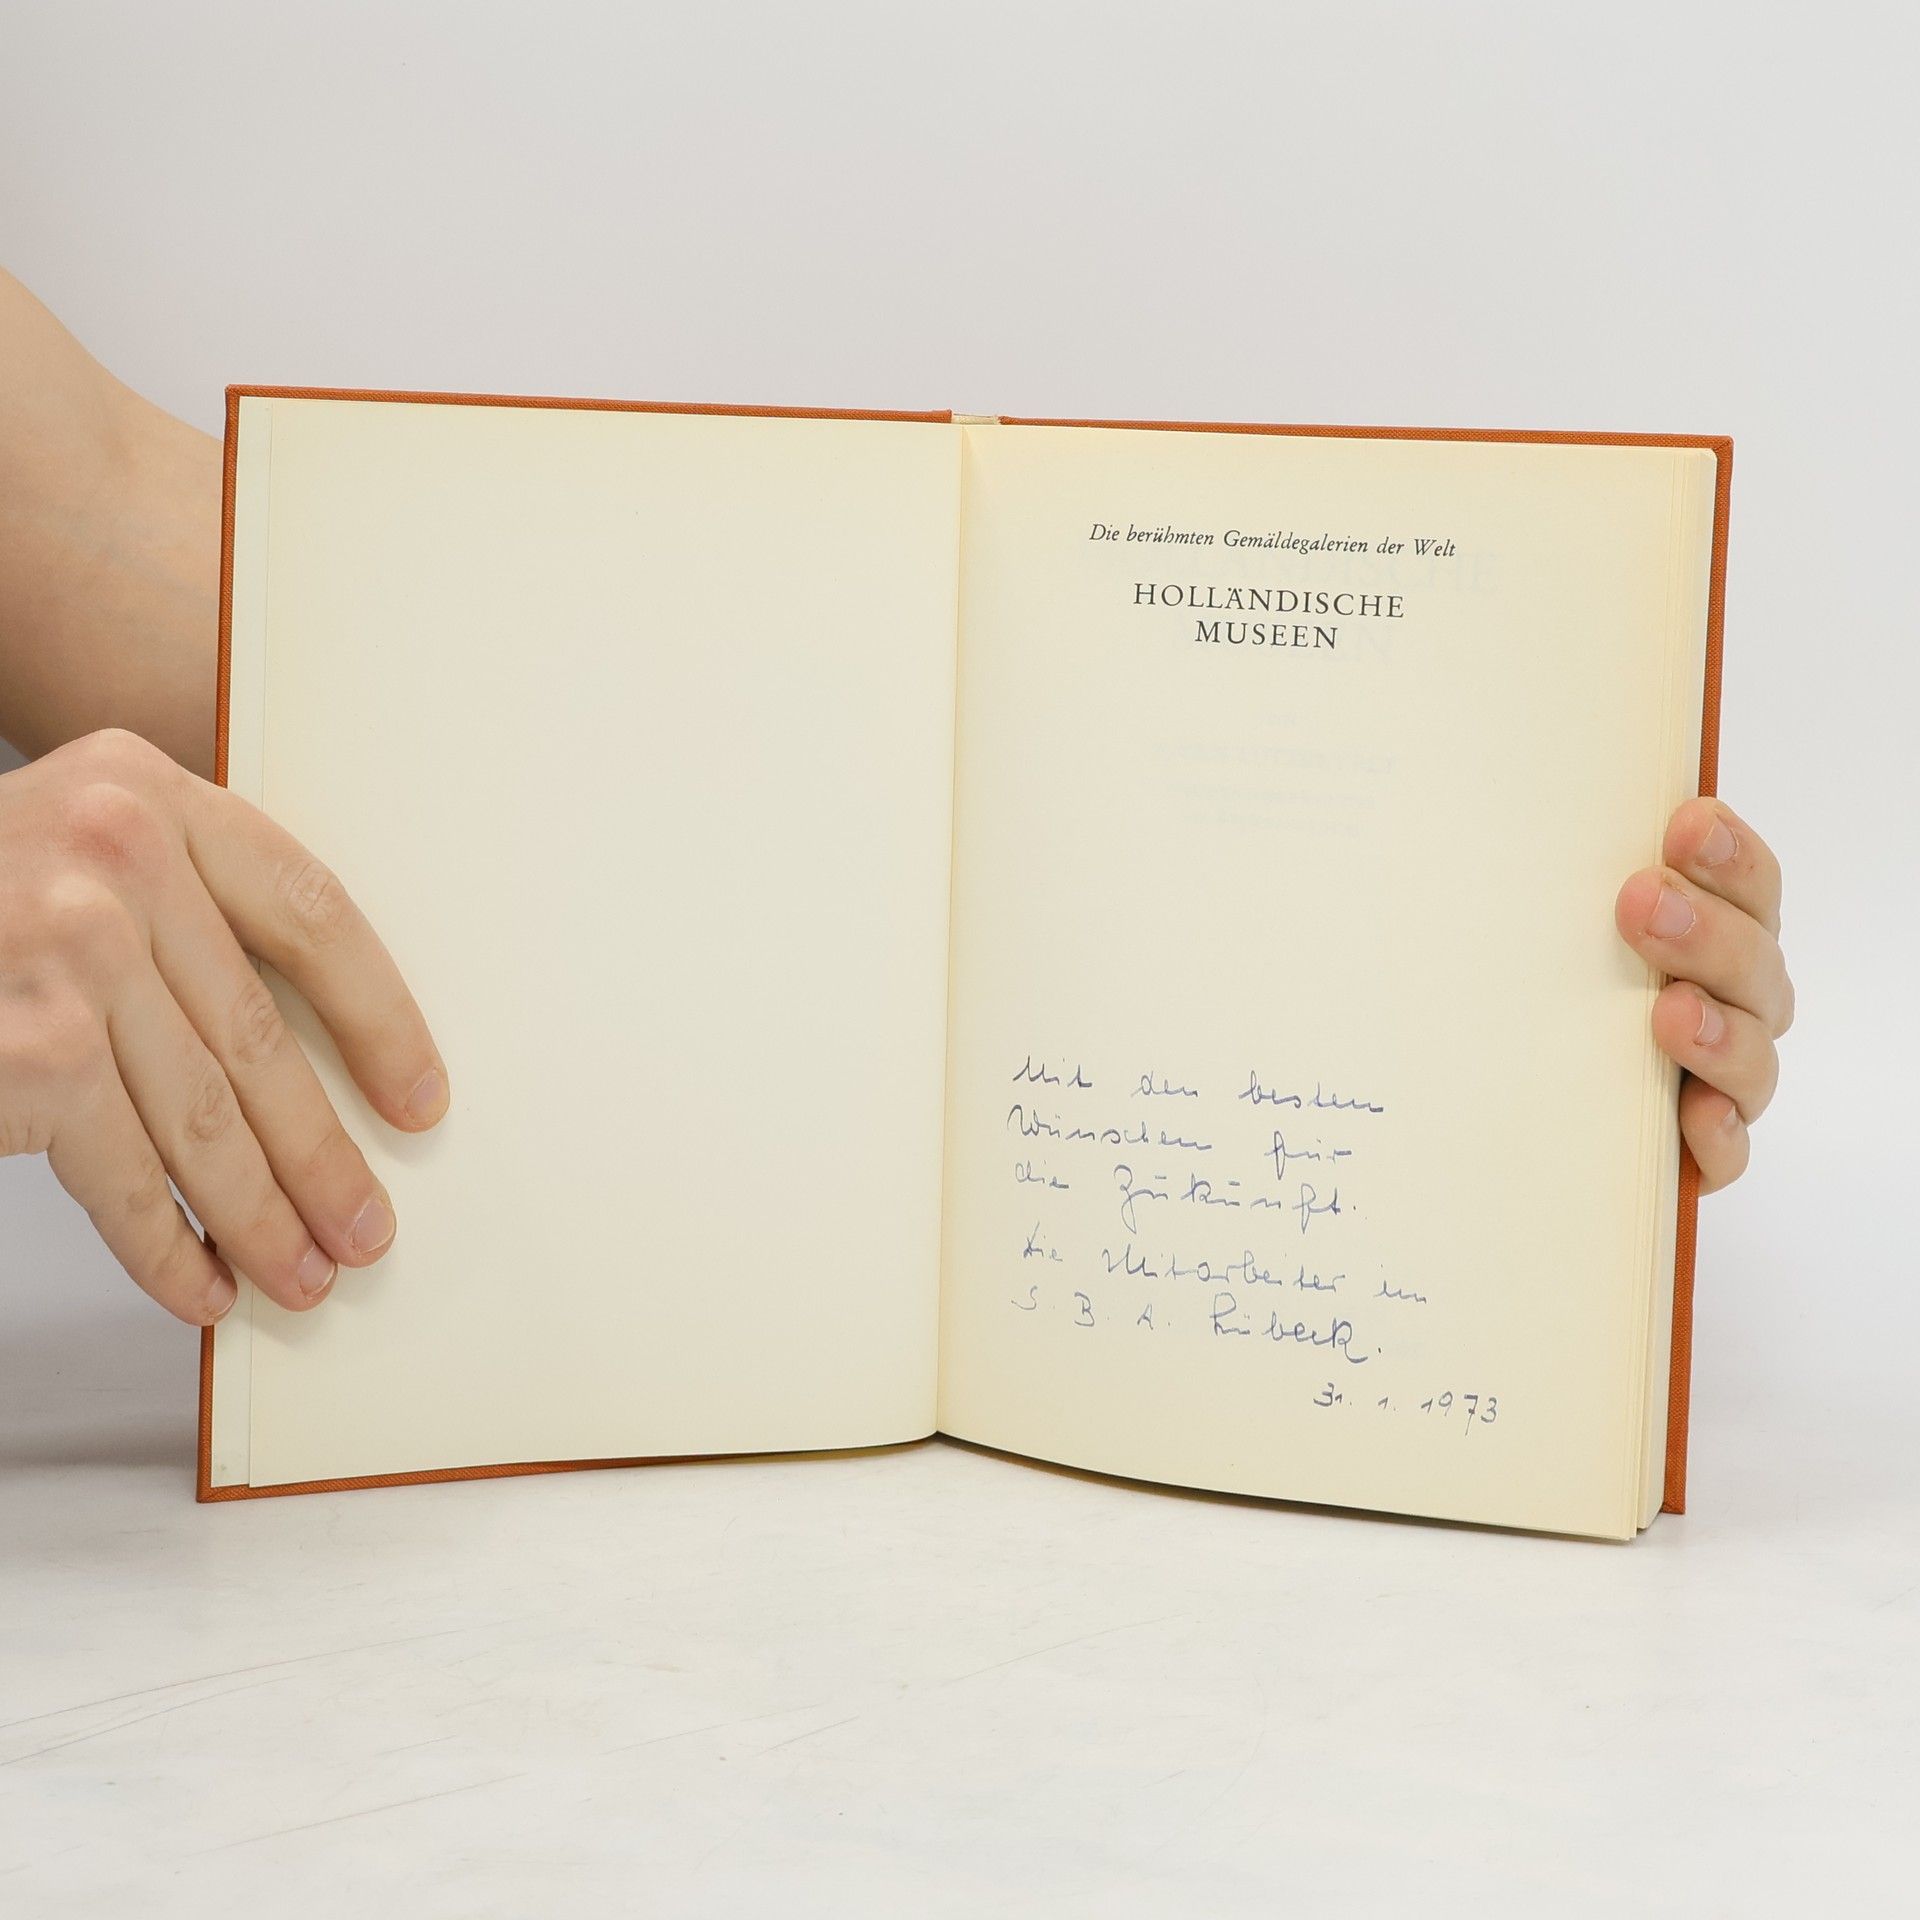 Die berühmten Gemäldegalerien der Welt
HOLLÄNDISCHE
MUSEEN
Mit den besten
Wünschen für
die Zukunft.
Die Mitarbeiter im
S. B. A. Lübeck.
31. 1. 1973